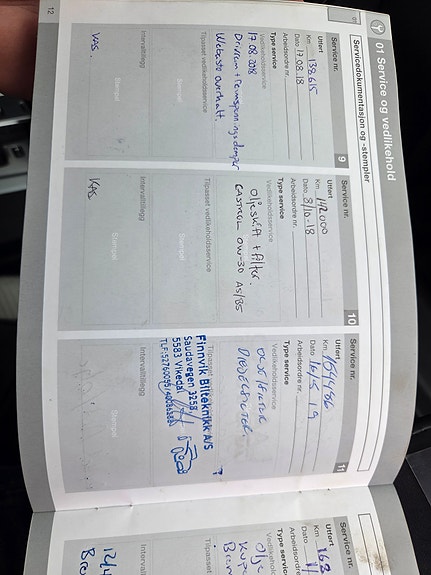 01
01 Service og vedlikehold
Servicedokumentasjon og -stempler
Service nr. 9
Utført
Km 138615
Dato 17.08.18
Arbeidsordre nr.
Type service
Vedlikeholdsservice
17.08.2018
Drivrem + remspenningsdemper
Webasto overhalt.
Tilpasset vedlikeholdsservice
Stempel
Intervalltillegg
Stempel
KAS.
Service nr. 10
Utført
Km 142000
Dato 3/10-18
Arbeidsordre nr.
Type service
Vedlikeholdsservice
oljeskift + filter
CASTROL 0W-30 A5/B5
Tilpasset vedlikeholdsservice
Stempel
Intervalltillegg
Stempel
KAS
Service nr. 11
Utført
Km 154456
Dato 16/5 19
Arbeidsordre nr.
Type service
Vedlikeholdsservice
DIESELFILTER.
Tilpasset
Finnvik Bilteknikk A/S
Saudavegen 3258
5583 Vikedal
Intervalltillegg
Stempel
12
Service nr.
Utført
Km 163
Dato
Arbeidsordre
Type service
Vedlikehold
Olje
Tilpasset
Interval